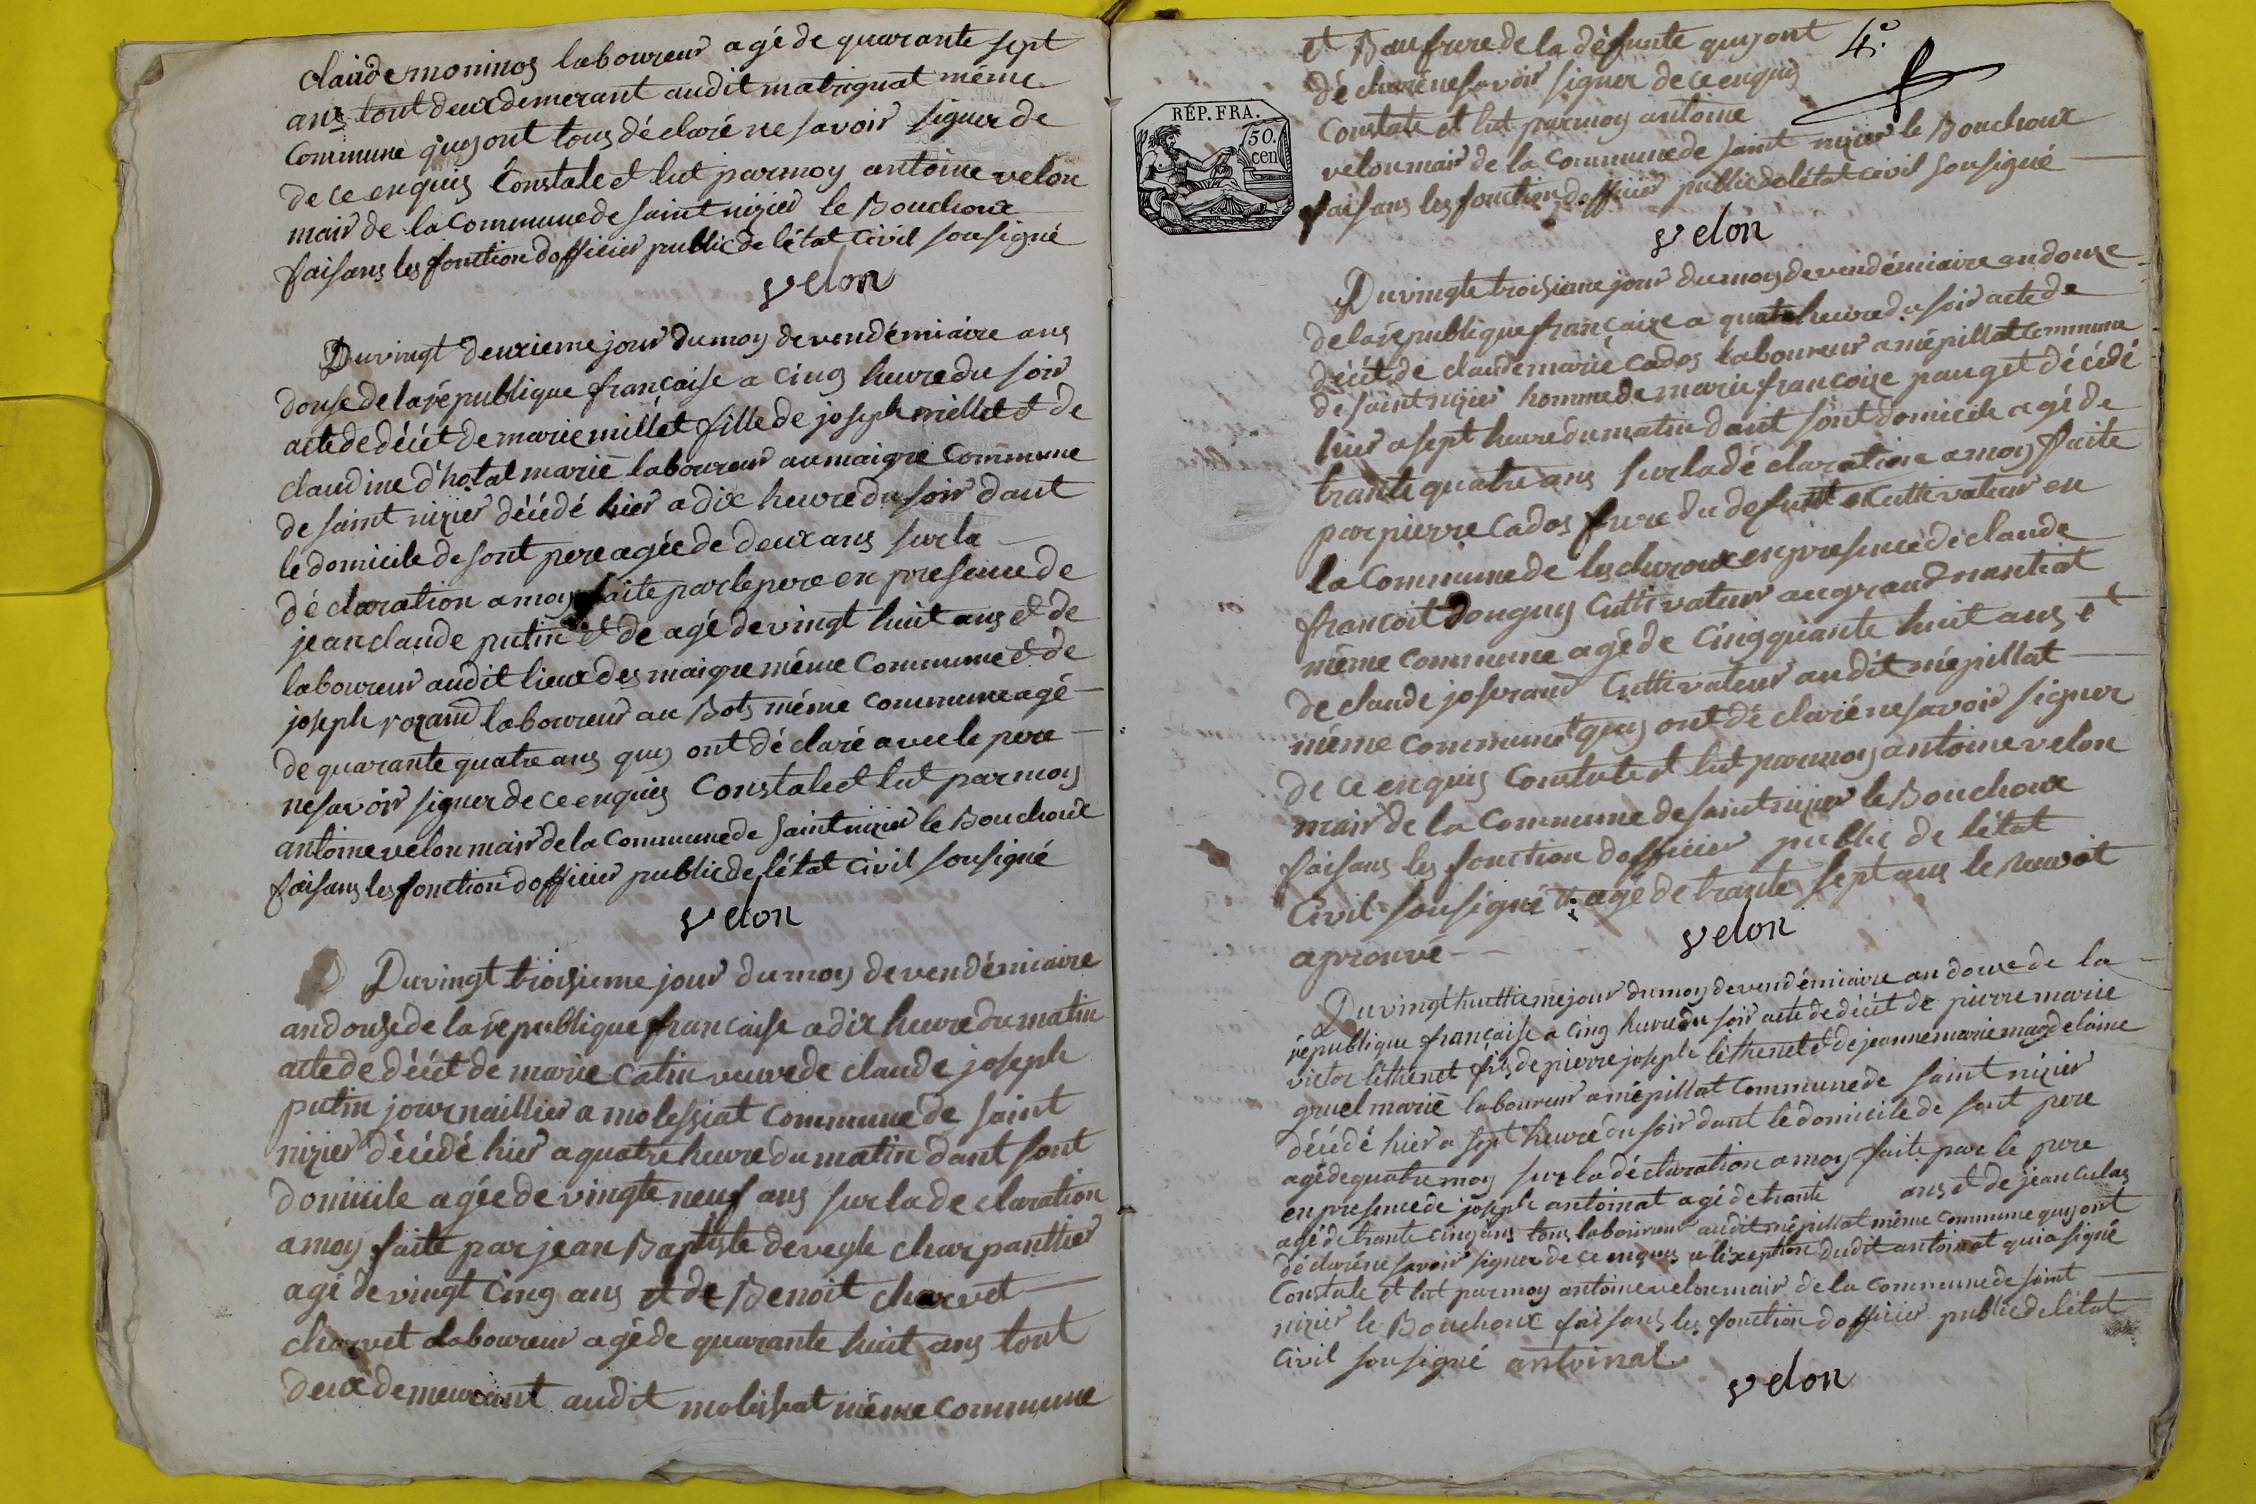 claude moninos laboureur agé de quarante sept
ans tout deux demerant audit matrignat même
Commune quy ont tous déclaré ne savoir signer de
de ce enquis Constale et lut par moy antoine velon
mair de la Commune de saint nizier le Bouchoux
faisans les fonction dofficier public de létat Civil sousigné
velon
Du vingt deuxieme jour du moy de vendémiaire ans
douse de la république française a cinq heure du soir
acte de décét de marie millet fille de joseph millet et de
claudine d'hotal marié laboureur au maigre Commune
de saint nizier décédé hier a dix heure du soir dant
le domicile de sont pere agée de deux ans sur la
déclaration a moy faite par le pere en presence de
jean claude putin et de agé de vingt huit ans et de
laboureur audit lieux des maigre même Commune et de
joseph rozand laboureur au Bots même Commune agé
de quarante quatre ans quy ont déclaré avec le pere
ne savoir signer de ce enquis Constale et lut par moy
antoine velon mair de la Commune de saint nizier le Bouchoux
faisans les fonction dofficier public de létat Civil sousigné
velon
Du vingt troisieme jour du moy de vendémiaire
an douse de la république francaise a dix heure du matin
acte de décét de marie Catin veuve de claude joseph
putin journaillier a molessiat Commune de saint
nizier décédé hier a quatre heure du matin dant sont
domicile agée de vingte neuf ans sur la declaration
a moy faite par jean Baptiste devegle charpanttier
agé de vingt cinq ans et de Benoit charvet
charvet laboureur agé de quarante huit ans tout
deux demeurant audit molissat même Commune
4e.
et Beaufrere de la défunte quy ont
déclaré ne savoir signer de ce enquis
Constale et lut par moy antoine
velon mair de la Commune de saint nizier le Bouchoux
faisans les fonction dofficier public de létat civil sousigné
RÉP. FRA.
50.
cen
velon
Du vingte troisieme jour du moy de vendémiaire an douze
de la république française a quatre heure du soir acte de
décét de claude marie Cados laboureur a mépillat Commune
de saint nizier homme de marie françoise pauget décédé
hier a sept heure du matin dant sont domicile agé de
trante quatre ans sur la déclaration a moy faite
par pierre Cados frere du defunt et Cultivateur en
la Commune de les churoux en presence de claude
francoit Donguy Cultivateur au grand nantiat
même Commune agé de Cinqquante huit ans et
de claude joserand Cultivateur audit mépillat
même Commune quy ont déclaré ne savoir signer
de ce enquis Constale et lut par moy antoine velon
mair de la Commune de saint nizier le Bouchoux
faisans les fonction dofficier public de létat
Civil sousigné agé de trante sept ans le renvoit
aprouvé
velon
Du vingt huittieme jour du moy de vendémiaire an douze de la
république française a cinq heure du soir acte de décét de pierre marie
victor léthenet fils de pierre joseph léthenet et de jeanne marie magdelaine
gruel marié laboureur a mépillat Commune de saint nizier
décédé hier a sept heure du soir dant le domicile de sont pere
agé de quatre moy sur la déclaration a moy faite par le pere
en presence de joseph antoinat agé de trante ans et de jean Culas
agé de trante cinq ans tous laboureur audit mépillat même Commune quy ont
déclaré ne savoir signer de ce enquis a léxeption dudit antoinat qui a signé
Constale et lut par moy antoine velon mair de la Commune de saint
nizier le Bouchoux faisans les fonction dofficier public de létat
Civil sousigné antoinat
velon